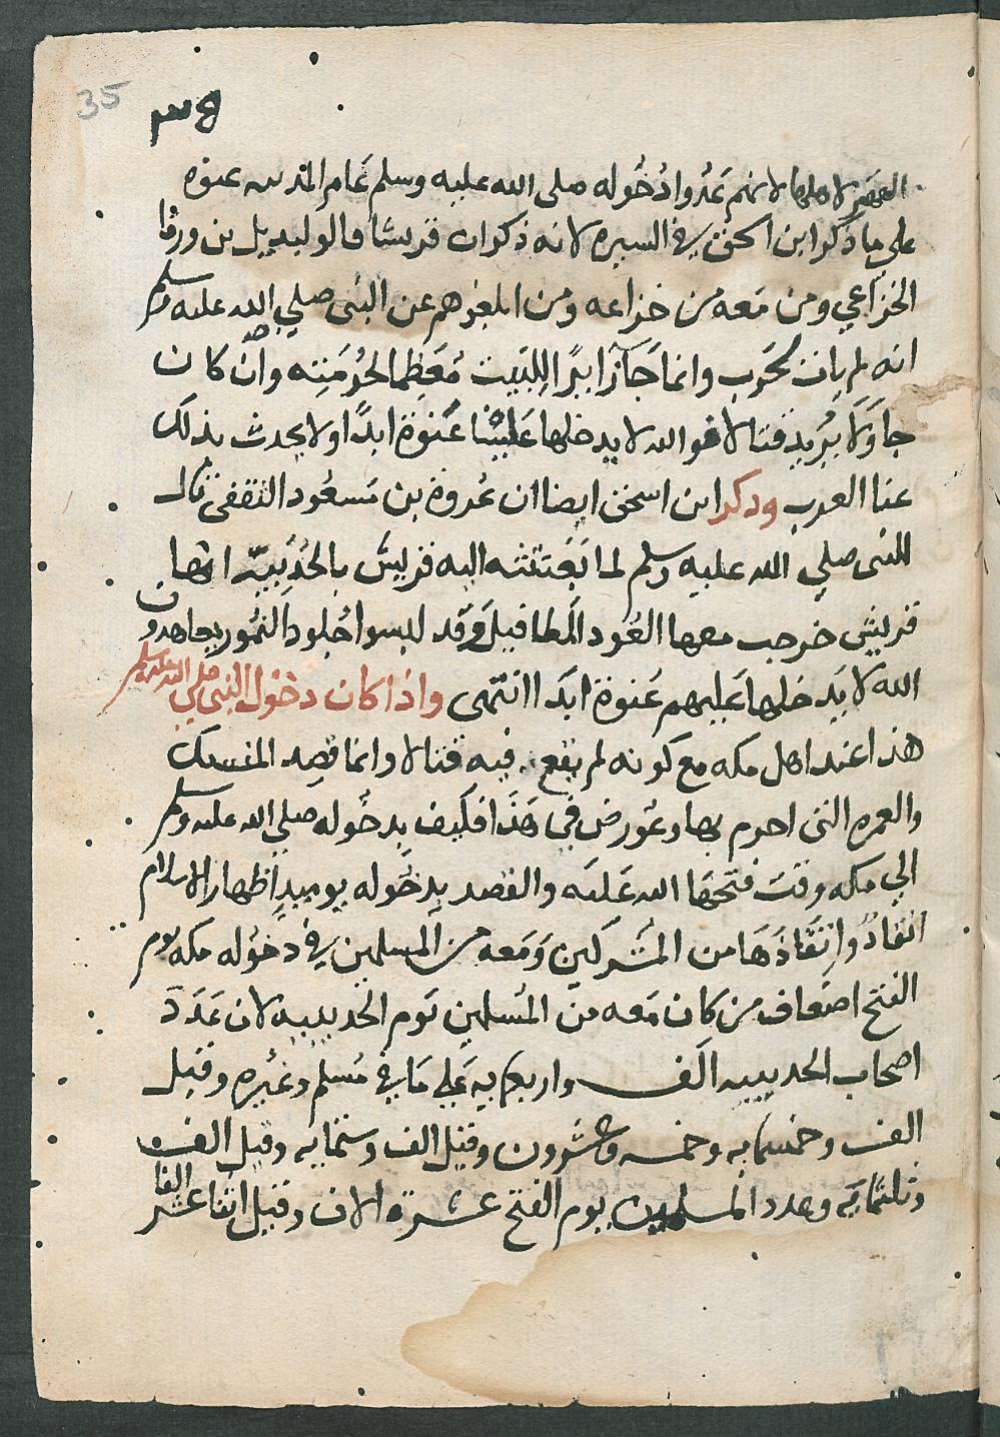 35
العمره لاهلها لانهم عدوا دخوله صلى الله عليه وسلم عام الحديبيه عنوه
على ما ذكر ابن اسحق في السيره لانه ذكر ان قريشا قالوا لبديل بن ورقا
الخزاعي ومن معه من خزاعه ومن ابلغوهم عن النبى صلي الله عليه وسلم
انه لم يات لحرب وانما جا زايرًا للبيت مُعَظِما لحُرمَتِه وان كان
جا وَلا يُريد قتالا فو الله لا يدخلها عَلينا عَنوة ابدًا ولا يحدث بذلك
عنا العرب وذكر ابن اسحق ايضا ان عُروة بن مَسعُود الثقفي قال
للنبى صلي الله عليه وسلم لما بَعَثته اليه قريش بالحُدَيبيّه انها
قريش خرجت معها العُوذ المطافيل وَقد لبسوا جُلود النمُور يعاهدون
الله لا يَدخلها عَليهم عَنوة ابدَا انتهى واذا كان دخول النبى صلي الله عليه وسلم
هذا عند اهل مكه مع كونه لم يقع فيه قتالا وانما قصد المنسك
والعمره التى احرم بها وعُورض في هَذا فكيف بدخوله صلي الله عليه وسلم
الي مكه وقت فتحهَا الله عَليَه والقصد بدخوله يوميذٍ اظهار الاسلام
انفاذ وانقَاذَهَا من المشركين وَمَعه من المسلمين في دخوله مكه يوم
الفتح اضعاف من كان مَعه من المُسلمين يَوم الحديبيه لان عَدَدَ
اصحاب الحديبيه الف واربعمايه عَلي مَا في مُسلم وغيُره وقيل
الف وخمسمايه وخمسه وعشرون وقيل الف وستمايه وقيل الف
وثلثمايَه وعدد المسلمين يوم الفتح عشرة الاف وقيل اثنا عشر الفا